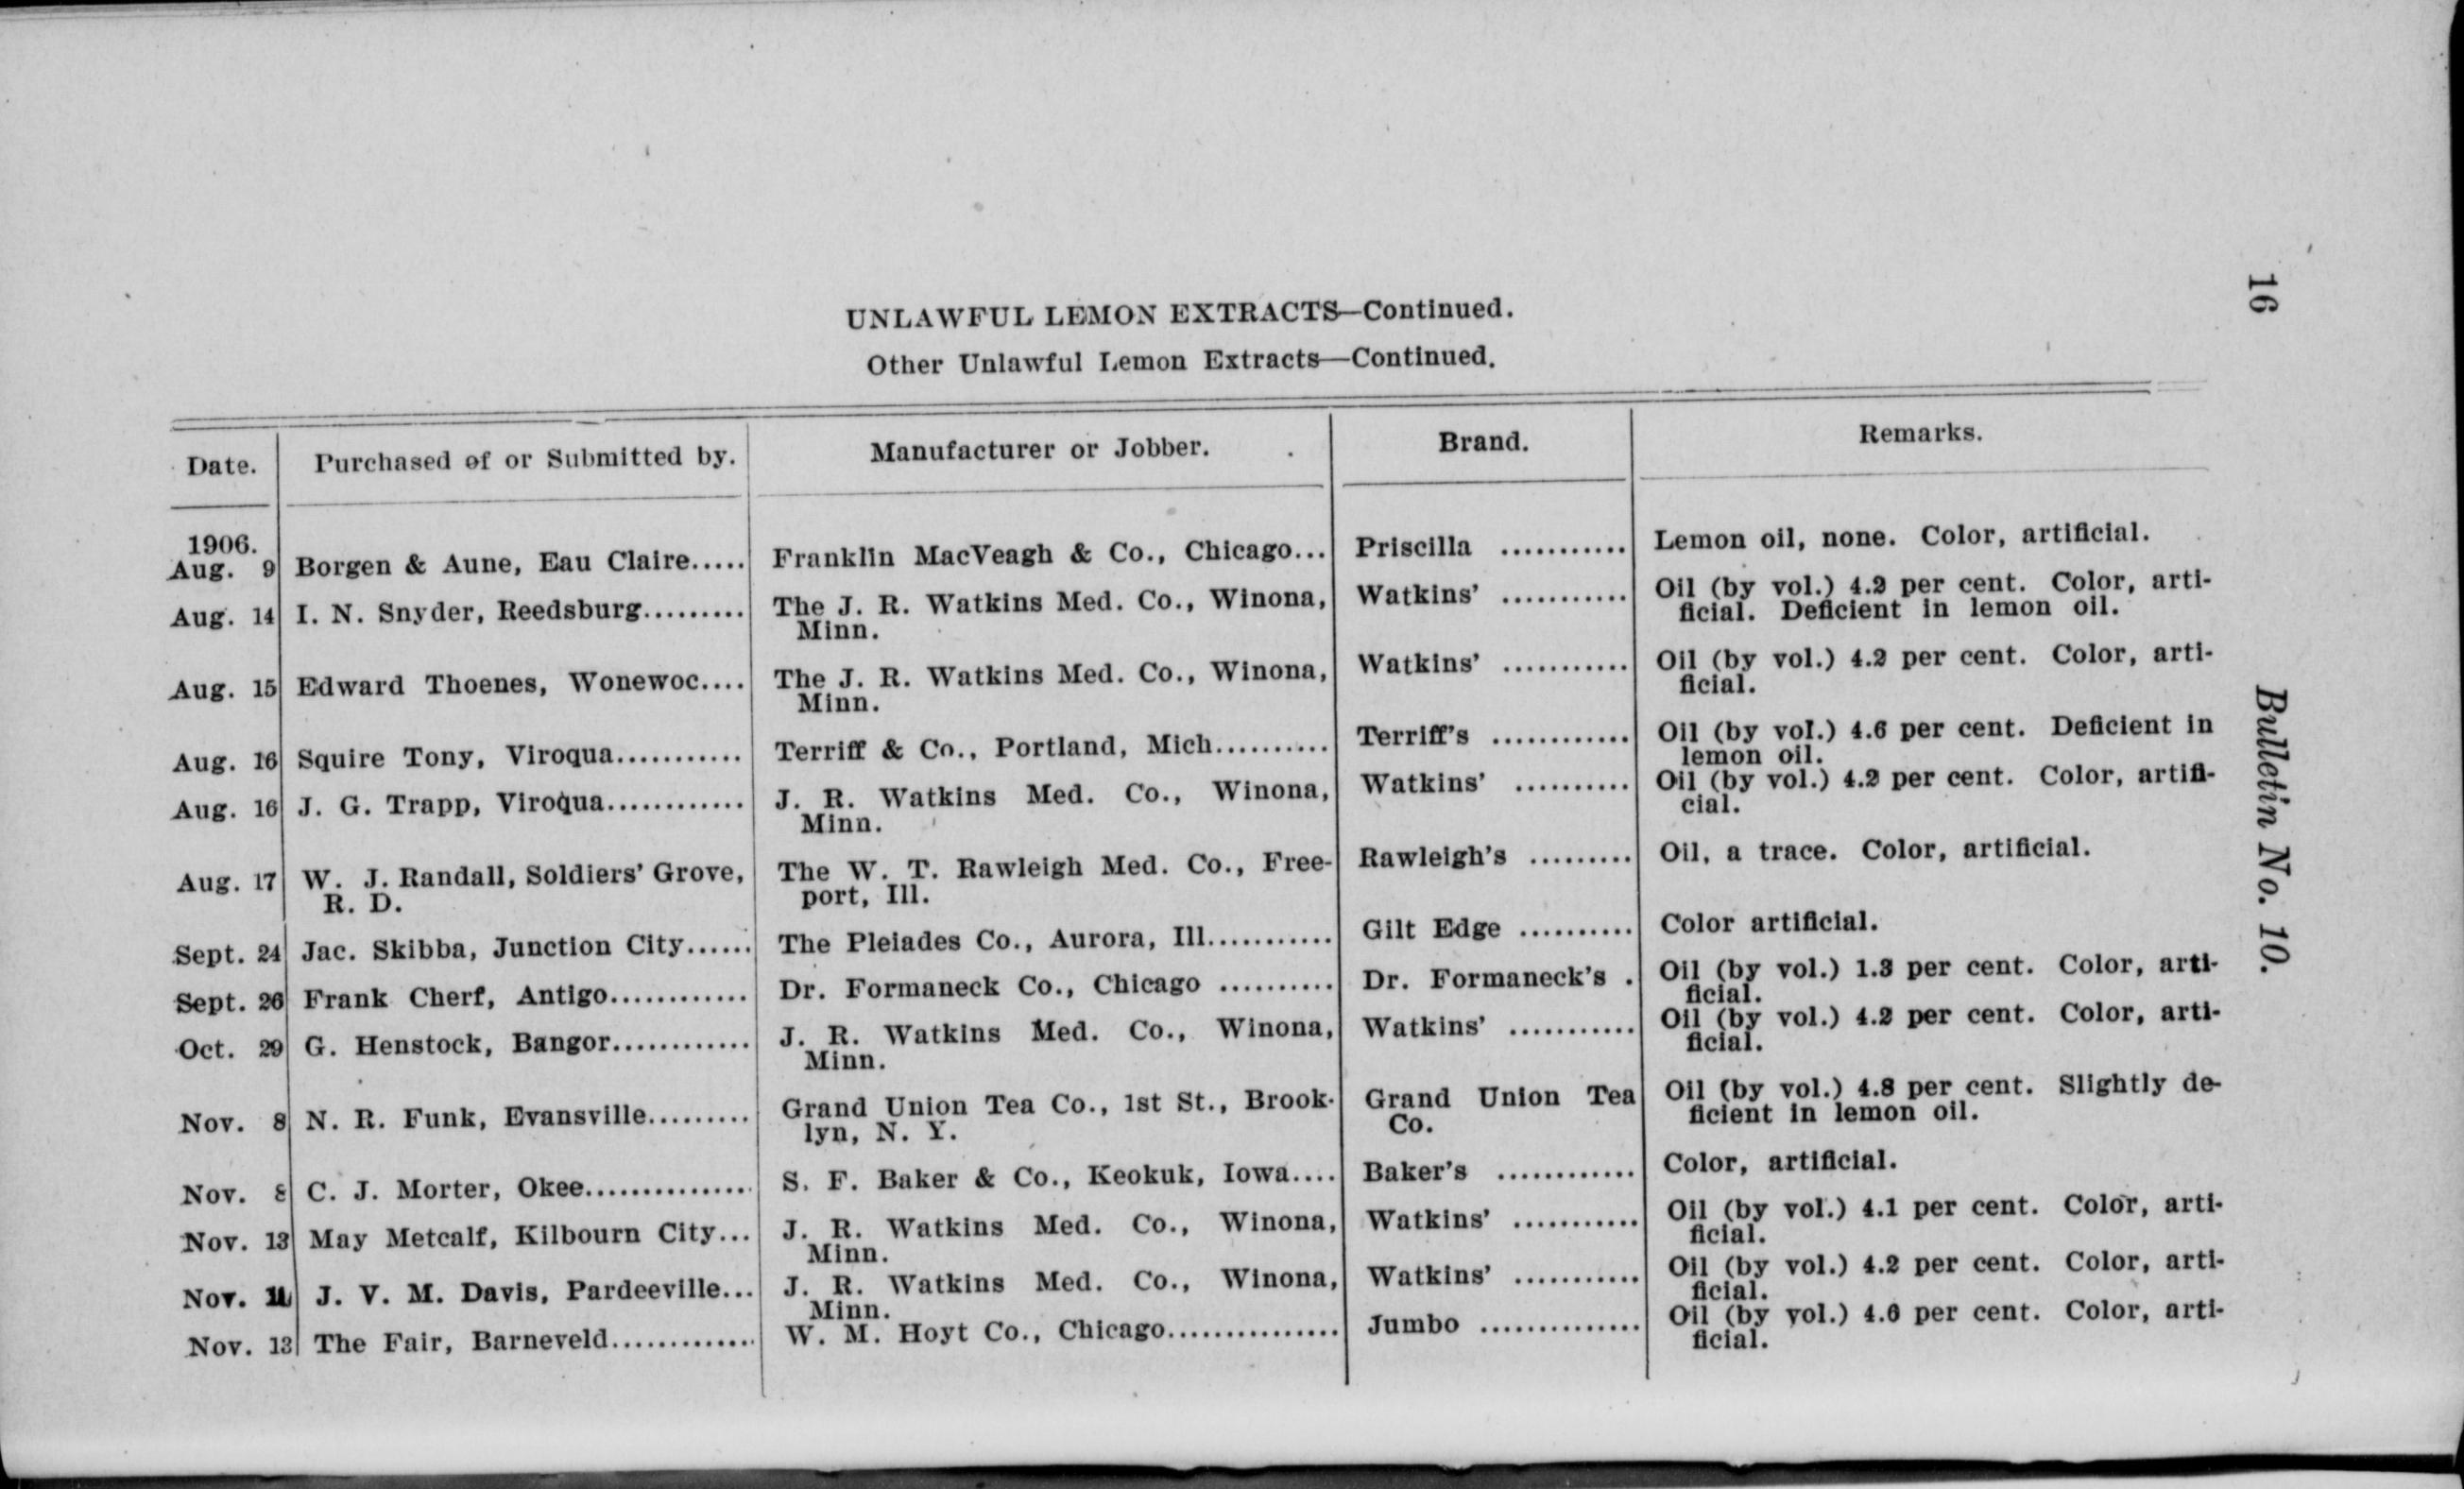 16
Bulletin No. 10.
UNLAWFUL LEMON EXTRACTS—Continued.
Other Unlawful Lemon Extracts—Continued.
Date. Purchased of or Submitted by. Manufacturer or Jobber. Brand. Remarks.
1906.
Aug. 9 Borgen & Aune, Eau Claire..... Franklin MacVeagh & Co., Chicago... Priscilla ........... Lemon oil, none. Color, artificial.
Aug. 14 I. N. Snyder, Reedsburg......... The J. R. Watkins Med. Co., Winona, Watkins' ........... Oil (by vol.) 4.2 per cent. Color, arti-
Minn. ficial. Deficient in lemon oil.
Aug. 15 Edward Thoenes, Wonewoc.... The J. R. Watkins Med. Co., Winona, Watkins' ........... Oil (by vol.) 4.2 per cent. Color, arti-
Minn. ficial.
Aug. 16 Squire Tony, Viroqua........... Terriff & Co., Portland, Mich.......... Terriff's ............ Oil (by vol.) 4.6 per cent. Deficient in
lemon oil.
Aug. 16 J. G. Trapp, Viroqua............ J. R. Watkins Med. Co., Winona, Watkins' .......... Oil (by vol.) 4.2 per cent. Color, artifi-
Minn. cial.
Aug. 17 W. J. Randall, Soldiers' Grove, The W. T. Rawleigh Med. Co., Free- Rawleigh's ......... Oil, a trace. Color, artificial.
R. D. port, Ill.
Sept. 24 Jac. Skibba, Junction City...... The Pleiades Co., Aurora, Ill........... Gilt Edge .......... Color artificial.
Sept. 26 Frank Cherf, Antigo............ Dr. Formaneck Co., Chicago .......... Dr. Formaneck's . Oil (by vol.) 1.3 per cent. Color, arti-
ficial.
Oct. 29 G. Henstock, Bangor............ J. R. Watkins Med. Co., Winona, Watkins' ........... Oil (by vol.) 4.2 per cent. Color, arti-
Minn. ficial.
Nov. 8 N. R. Funk, Evansville......... Grand Union Tea Co., 1st St., Brook- Grand Union Tea Oil (by vol.) 4.8 per cent. Slightly de-
lyn, N. Y. Co. ficient in lemon oil.
Nov. 8 C. J. Morter, Okee............... S. F. Baker & Co., Keokuk, Iowa.... Baker's ............ Color, artificial.
Nov. 13 May Metcalf, Kilbourn City... J. R. Watkins Med. Co., Winona, Watkins' ........... Oil (by vol.) 4.1 per cent. Color, arti-
Minn. ficial.
Nov. J. V. M. Davis, Pardeeville... J. R. Watkins Med. Co., Winona, Watkins' ........... Oil (by vol.) 4.2 per cent. Color, arti-
Minn. ficial.
Nov. 13 The Fair, Barneveld............. W. M. Hoyt Co., Chicago............... Jumbo .............. Oil (by vol.) 4.6 per cent. Color, arti-
ficial.